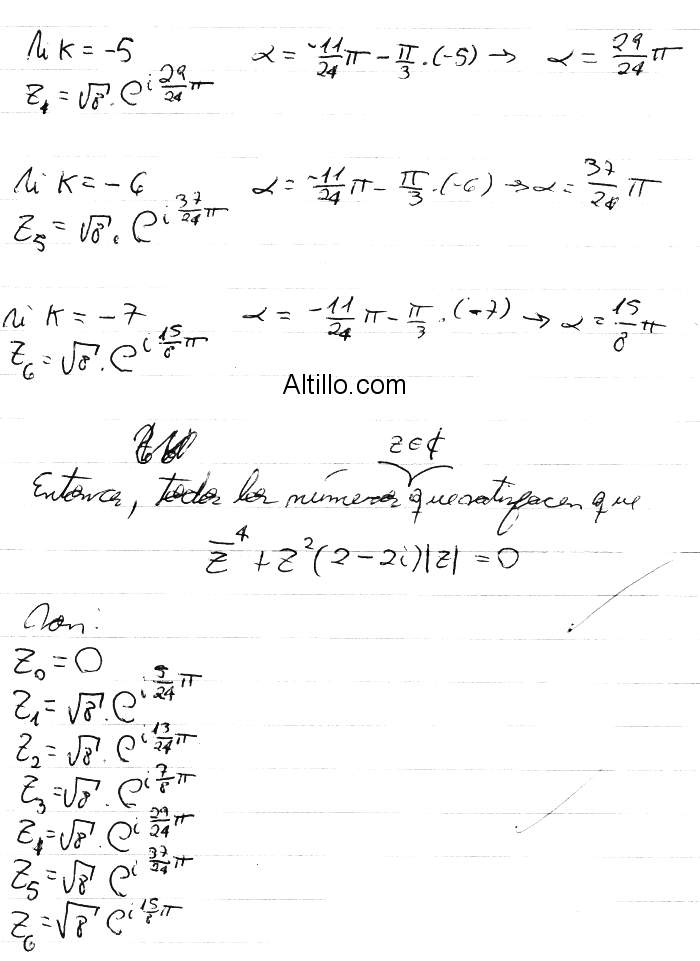 Si K = -5   α = -11/24 π - π/3 . (-5) → α = 29/24 π
Z₄ = √8 . e^(i 29/24 π)
Si K = -6   α = -11/24 π - π/3 . (-6) → α = 37/24 π
Z₅ = √8 . e^(i 37/24 π)
Si K = -7   α = -11/24 π - π/3 . (-7) → α = 15/8 π
Z₆ = √8 . e^(i 15/8 π)
Altillo.com
z ∈ ℂ
Entonces, todos los números que satisfacen que
z̄⁴ + z²(2-2i)|z| = 0
Son:
Z₀ = 0
Z₁ = √8 . e^(i 5/24 π)
Z₂ = √8 . e^(i 13/24 π)
Z₃ = √8 . e^(i 7/8 π)
Z₄ = √8 . e^(i 29/24 π)
Z₅ = √8 e^(i 37/24 π)
Z₆ = √8 e^(i 15/8 π)